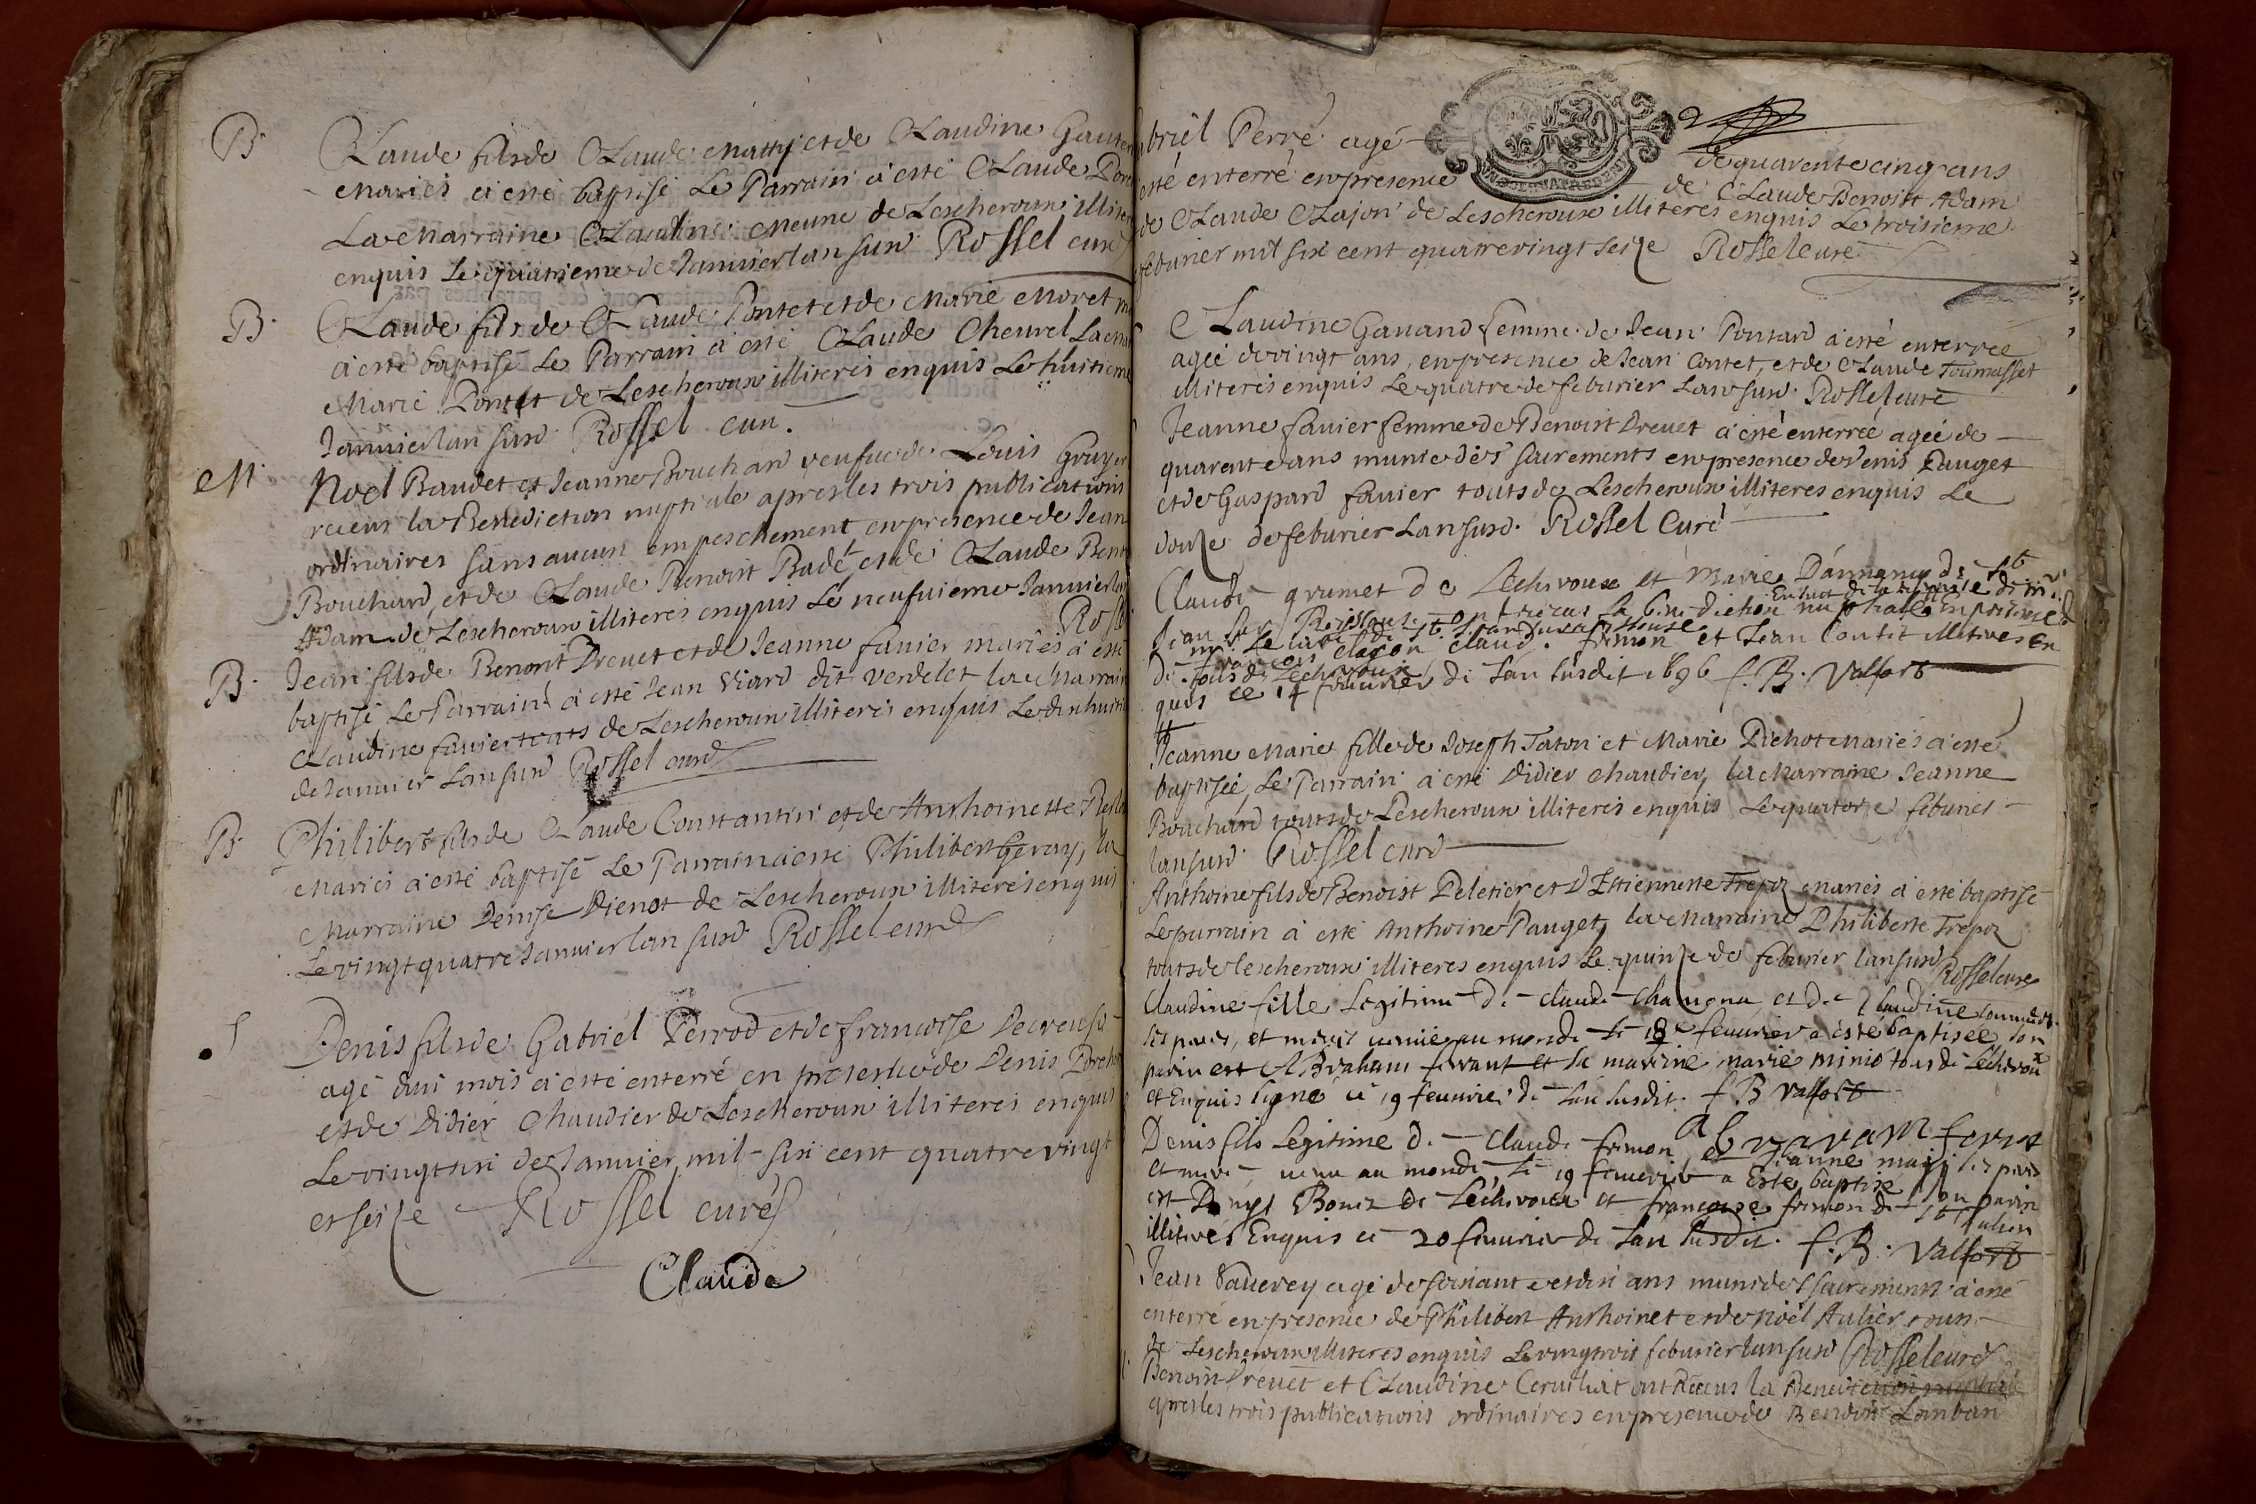 B
Claude fils de Claude Matty et de Claudine Gauter
Mariés a esté baptisé Le Parrain a esté Claude
La Marraine Claudine Meune de Lescheroux illiteres
enquis Le quatrieme de Janvier lan susd Rossel curé
B.
Claude fils de Claude Pontet et de Marie Moret
a esté baptisé Le Parrain a esté Claude Cheurel La
Marie Pontet de Lescheroux illiteres enquis Le huitieme
Janvier lan susd Rossel curé.
M.
Noel Baudet et Jeanne Bouchard veufue de Louis Gruyer
receu la Benediction nuptiale apres les trois publications
ordinaires sans aucun empeschement en presence de Jean
Bouchard, et de Claude Benoist Badet et de Claude
Adam de Lescheroux illiteres enquis Le neufuieme Janvier lan
B.
Jean fils de Benoit Dreuet et de Jeanne fauier mariés a esté
baptisé Le Parrain a esté Jean Viard dit verdelet la Marraine
Claudine fauier touts de Lescheroux illiteres enquis Le dixhuitie
de Janvier Lan susd Rossel curé
B
Philibert fils de Claude Constantin et de Anthoinette
Mariés a esté baptisé Le Parrain a esté Philibert Geray, la
Marraine Denise Dienot de Lescheroux illiteres enquis
Le vingt quatre Janvier lan susd Rossel curé
S
Denis fils de Gabriel Perrod et de francoise Decreuse
agé dun mois a esté enterré en presence de Denis
et de Didier Chaudier de Lescheroux illiteres enquis
Le vingt un de Janvier mil six cent quatre vingt
et seize Rossel curé
Claude
abriel Perré agé de quarente cinq ans
esté enterré en presence de Claude Benoist Adam
de Claude Clajon de Lescheroux illiteres enquis Le troisieme
feburier mil six cent quatre vingt seize Rossel curé
Claudine Gauand femme de Jean Pontard a esté enterrée
agée de vingt ans, en presence de Jean Contet, et de Claude Toumasset
illiteres enquis Le quatre de feburier Lan susd. Rossel curé
Jeanne fauier femme de Benoist Dreuet a esté enterrée agée de
quarente ans munie des sacrements en presence de Denis Pauget
et de Gaspard fauier touts de Lescheroux illiteres enquis Le
douze de feburier Lan susd. Rossel Curé
Claude grumet de Lechroux et Marie
Jean sur Reissouse ont receus la benediction nuptiale en presence
Claude frimon et Jean Contet illitires en
quis ce 14 feuurier de Lan susdit 1696 f. B. Valfort
Jeanne Marie fille de Joseph Taton et Marie Pichot mariés a esté
baptisée, Le Parrain a esté Didier Chaudier, la Marraine Jeanne
Bouchard touts de Lescheroux illiteres enquis Le quatorze feburier
lan susd Rossel curé
Anthoine fils de Benoist Peletier et D Estiennette Trepoz mariés a esté baptisé
Le parrain a esté Anthoine Pauget, la Marraine Philiberte Trepoz
touts de lescheroux illiteres enquis Le quinze de feburier lan susd Rossel curé
Claudine fille Legitime de Claude Chaugna et de Claudine
ses peres, et meres venue au monde le 18e feuurier a esté baptisee son
parin est Abraham ferrant et sa marine marie minio tous de Lechroux
et Enquis signé ce 19 feuurier de Lan susdit. f B Valfort
abraham ferra
Denis fils Legitime de Claude frimon et Jeanne ses peres
et mere venu au monde, Le 19 feuurier a esté baptisé son parin
est Denys Bouz de Lechroux et francoise frimon de St Julien
illitirés Enquis ce 20 feuurier de Lan susdit. f. B. Valfort
Jean Vauerey agé de soixante et dix ans muni des sacrements a esté
enterré en presence de Philibert Anthoinet et de Noel Aulier touts
de Lescheroux illiteres enquis Le vingt trois feburier lan susd Rossel curé
Benoit Dreuet et Claudine ont Receus la Benediction nuptiale
apres les trois publications ordinaires en presence de Benoit